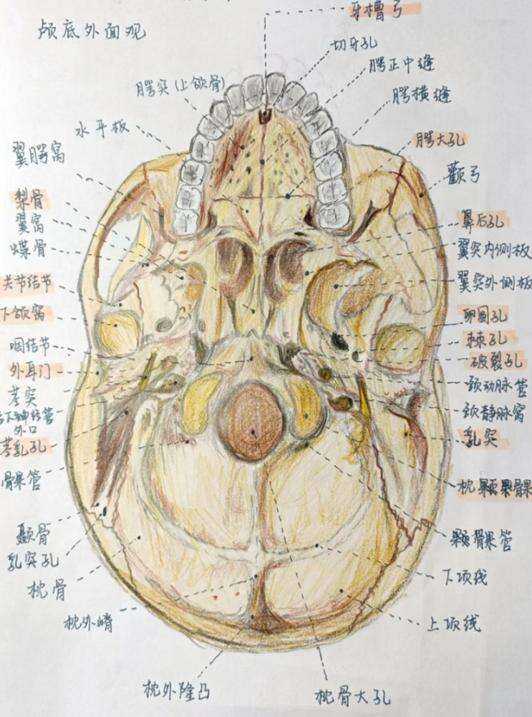 颅底外面观
牙槽弓
切牙孔
腭正中缝
腭突(上颌骨)
腭横缝
水平板
腭大孔
翼腭窝
颧弓
梨骨
翼窝
蝶骨
关节结节
下颌窝
咽结节
外耳门
茎突
外口
茎乳孔
骨果管
颞骨
乳突孔
枕骨
枕外嵴
鼻后孔
翼突内侧板
翼突外侧板
卵圆孔
棘孔
破裂孔
颈动脉管
颈静脉窝
乳突
下项线
上项线
枕外隆凸
枕骨大孔